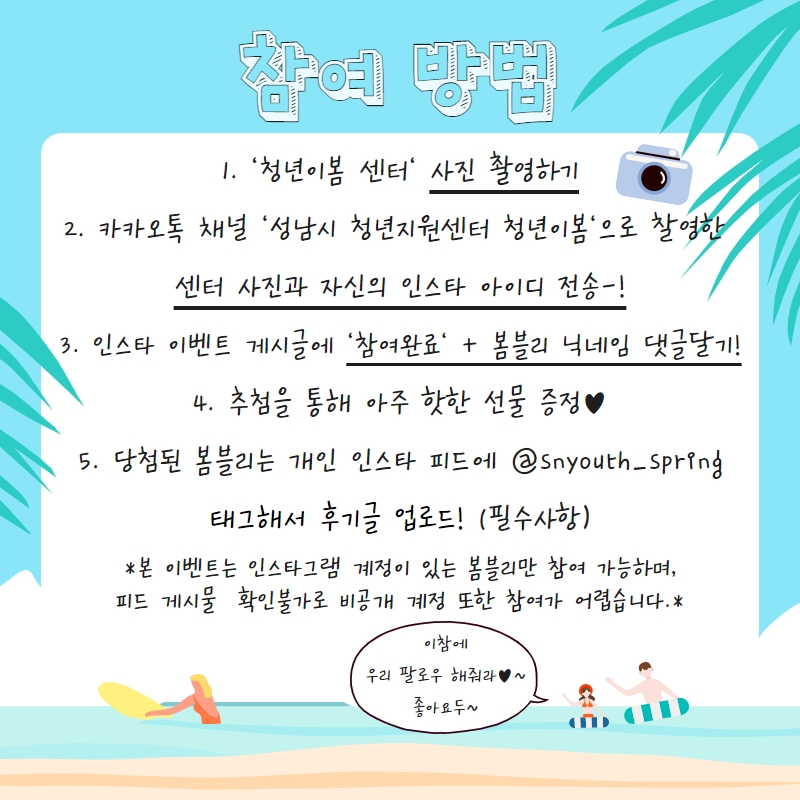 참여 방법
1. '청년이봄 센터' 사진 촬영하기
2. 카카오톡 채널 '성남시 청년지원센터 청년이봄'으로 촬영한
센터 사진과 자신의 인스타 아이디 전송~!
3. 인스타 이벤트 게시글에 '참여완료' + 봄블리 닉네임 댓글달기!
4. 추첨을 통해 아주 핫한 선물 증정♥
5. 당첨된 봄블리는 개인 인스타 피드에 @snyouth_spring
태그해서 후기글 업로드! (필수사항)
*본 이벤트는 인스타그램 계정이 있는 봄블리만 참여 가능하며,
피드 게시물 확인불가로 비공개 계정 또한 참여가 어렵습니다.*
이참에
우리 팔로우 해줘라♥~
좋아요두~